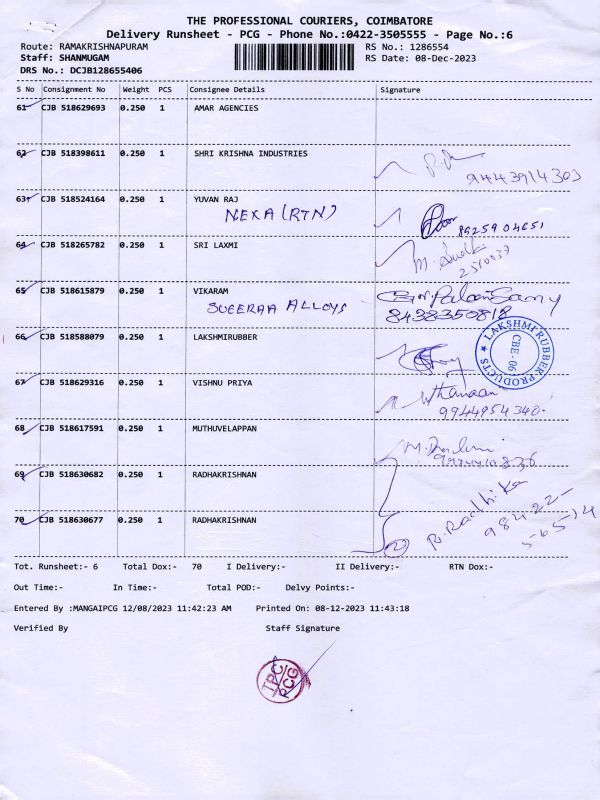 THE PROFESSIONAL COURIERS, COIMBATORE
Delivery Runsheet - PCG - Phone No.:0422-3505555 - Page No.:6
Route: RAMAKRISHNAPURAM RS No.: 1286554
Staff: SHANMUGAM RS Date: 08-Dec-2023
DRS No.: DCJB128655406
S No Consignment No Weight PCS Consignee Details Signature
61 CJB 518629693 0.250 1 AMAR AGENCIES
62 CJB 518398611 0.250 1 SHRI KRISHNA INDUSTRIES
9443914303
63 CJB 518524164 0.250 1 YUVAN RAJ
NEXA (RTN)
9925904651
64 CJB 518265782 0.250 1 SRI LAXMI
65 CJB 518615879 0.250 1 VIKARAM
ALLOYS 8438350818
66 CJB 518588079 0.250 1 LAKSHMIRUBBER
LAKSHMI RUBBER PRODUCTS
CBE-06
67 CJB 518629316 0.250 1 VISHNU PRIYA
9944954340-
68 CJB 518617591 0.250 1 MUTHUVELAPPAN
69 CJB 518630682 0.250 1 RADHAKRISHNAN
R. Radhika
98422-
56514
70 CJB 518630677 0.250 1 RADHAKRISHNAN
2
Tot. Runsheet:- 6 Total Dox:- 70 I Delivery:- II Delivery:- RTN Dox:-
Out Time:- In Time:- Total POD:- Delvy Points:-
Entered By :MANGAIPCG 12/08/2023 11:42:23 AM Printed On: 08-12-2023 11:43:18
Verified By Staff Signature
TPC
PCG